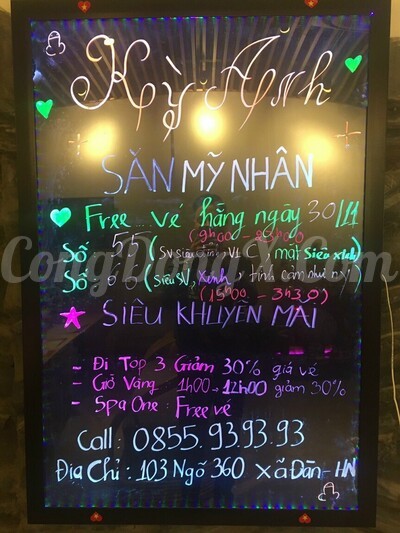 Kỳ Ảnh
SĂN MỸ NHÂN
Free vé hằng ngày 30/11
Số 55 (SV siêu xinh, VLC, mặt siêu xinh)
Số (Siêu SV, Xinh, tình cảm như ny)
(15h00 - 3h30)
SIÊU KHUYẾN MÃI
- Đi Top 3 Giảm 30% giá vé
- Giờ Vàng 1h00 - 12h00 giảm 30%
- Spa One : Free vé
Call : 0855.93.93.93
Địa Chỉ : 103 Ngõ 360 Xã Đàn - HN